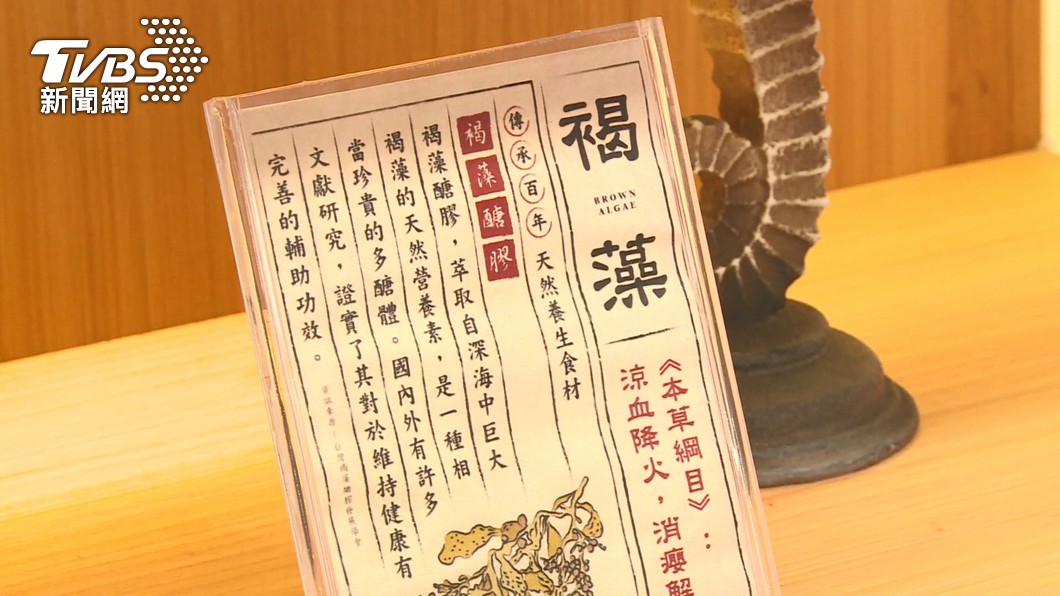 TVBS
新聞網
褐藻
BROWN
ALGAE
《本草綱目》：
涼血降火，消癭解
傳承百年 天然養生食材
褐藻醣膠
褐藻醣膠，萃取自深海中巨大
褐藻的天然營養素，是一種相
當珍貴的多醣體。國內外有許多
文獻研究，證實了其對於維持健康有
完善的輔助功效。